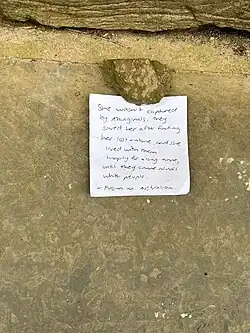 She wasn't captured
by Aboriginals. They
saved her after finding
her lost + alone, and she
lived with them
happily for a long time,
until they came across
white people.
- From an Australian